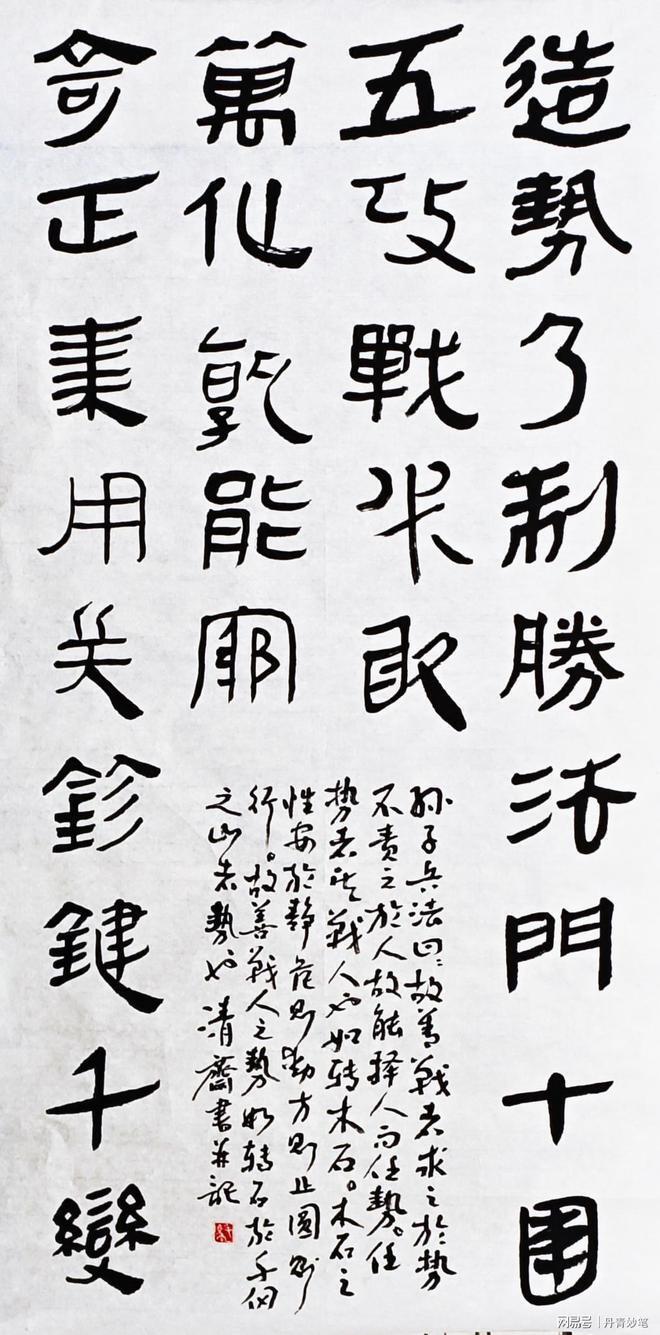 造勢乃制勝法門十圍
五攻戰必取
奇正秉用关鈐鍵千變
萬化孰能窮
孙子兵法曰：故善戰者求之於势
不責之於人故能择人而任勢。任
势者其戰人也如转木石。木石之
性安於静危则動方则止圆则
行。故善戰人之勢如轉石於千仞
之山者勢也 清齋書并記
网易号 | 丹青妙笔